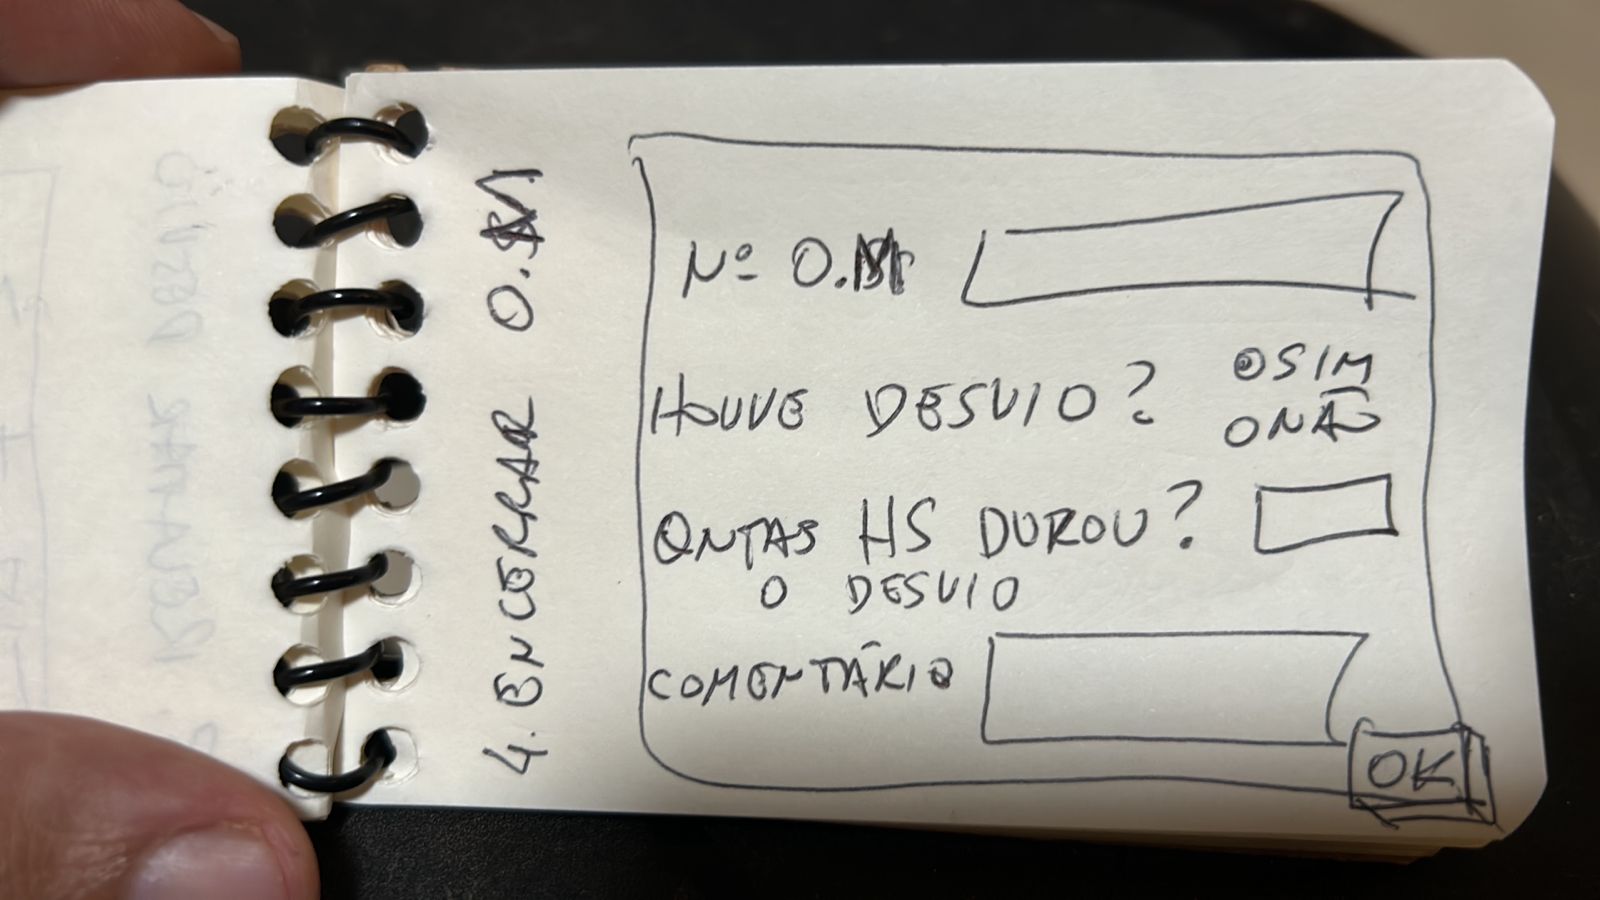 4. ENCERRAR O.M.
Nº O.M.
HOUVE DESVIO?
SIM
NÃO
QNTAS HS DUROU?
O DESVIO
COMENTÁRIO
OK
RECLAMAR DESVIO